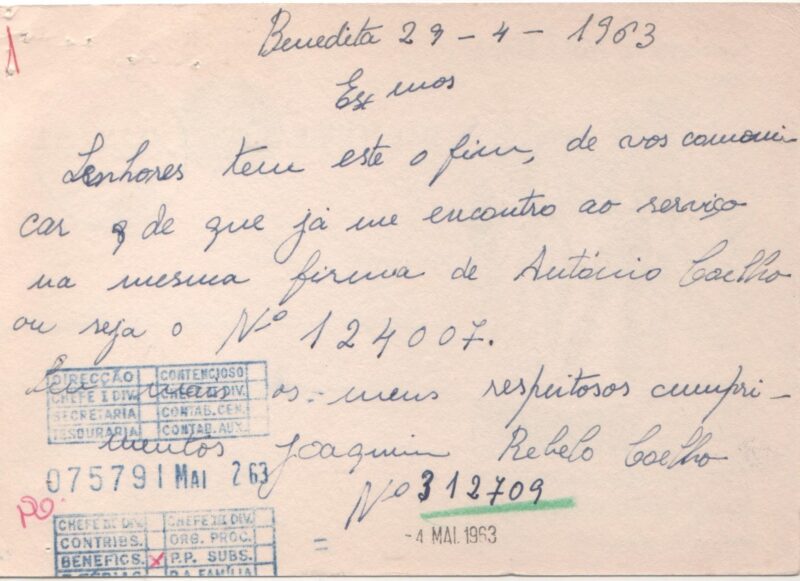 1
Benedita 29-4-1963
Exmos
Senhores tem este o fim, de vos comoni
car de que já me encontro ao serviço
na mesma firma de António Coelho
ou seja o Nº 124007.
mais os meus respeitosos cumpri-
mentos Joaquim Rebelo Coelho
Nº 312709
DIRECÇÃO CONTENCIOSO
CHEFE I DIV. CHEFE DIV.
SECRETARIA CONTAB. CEN.
TESOURARIA CONTAB. AUX.
075791 MAI 2 63
-4 MAI. 1963
CHEFE II DIV. CHEFE III DIV.
CONTRIBS. ORG. PROC.
BENEFICS. x P.P. SUBS.
P.A. FAMÍLIA